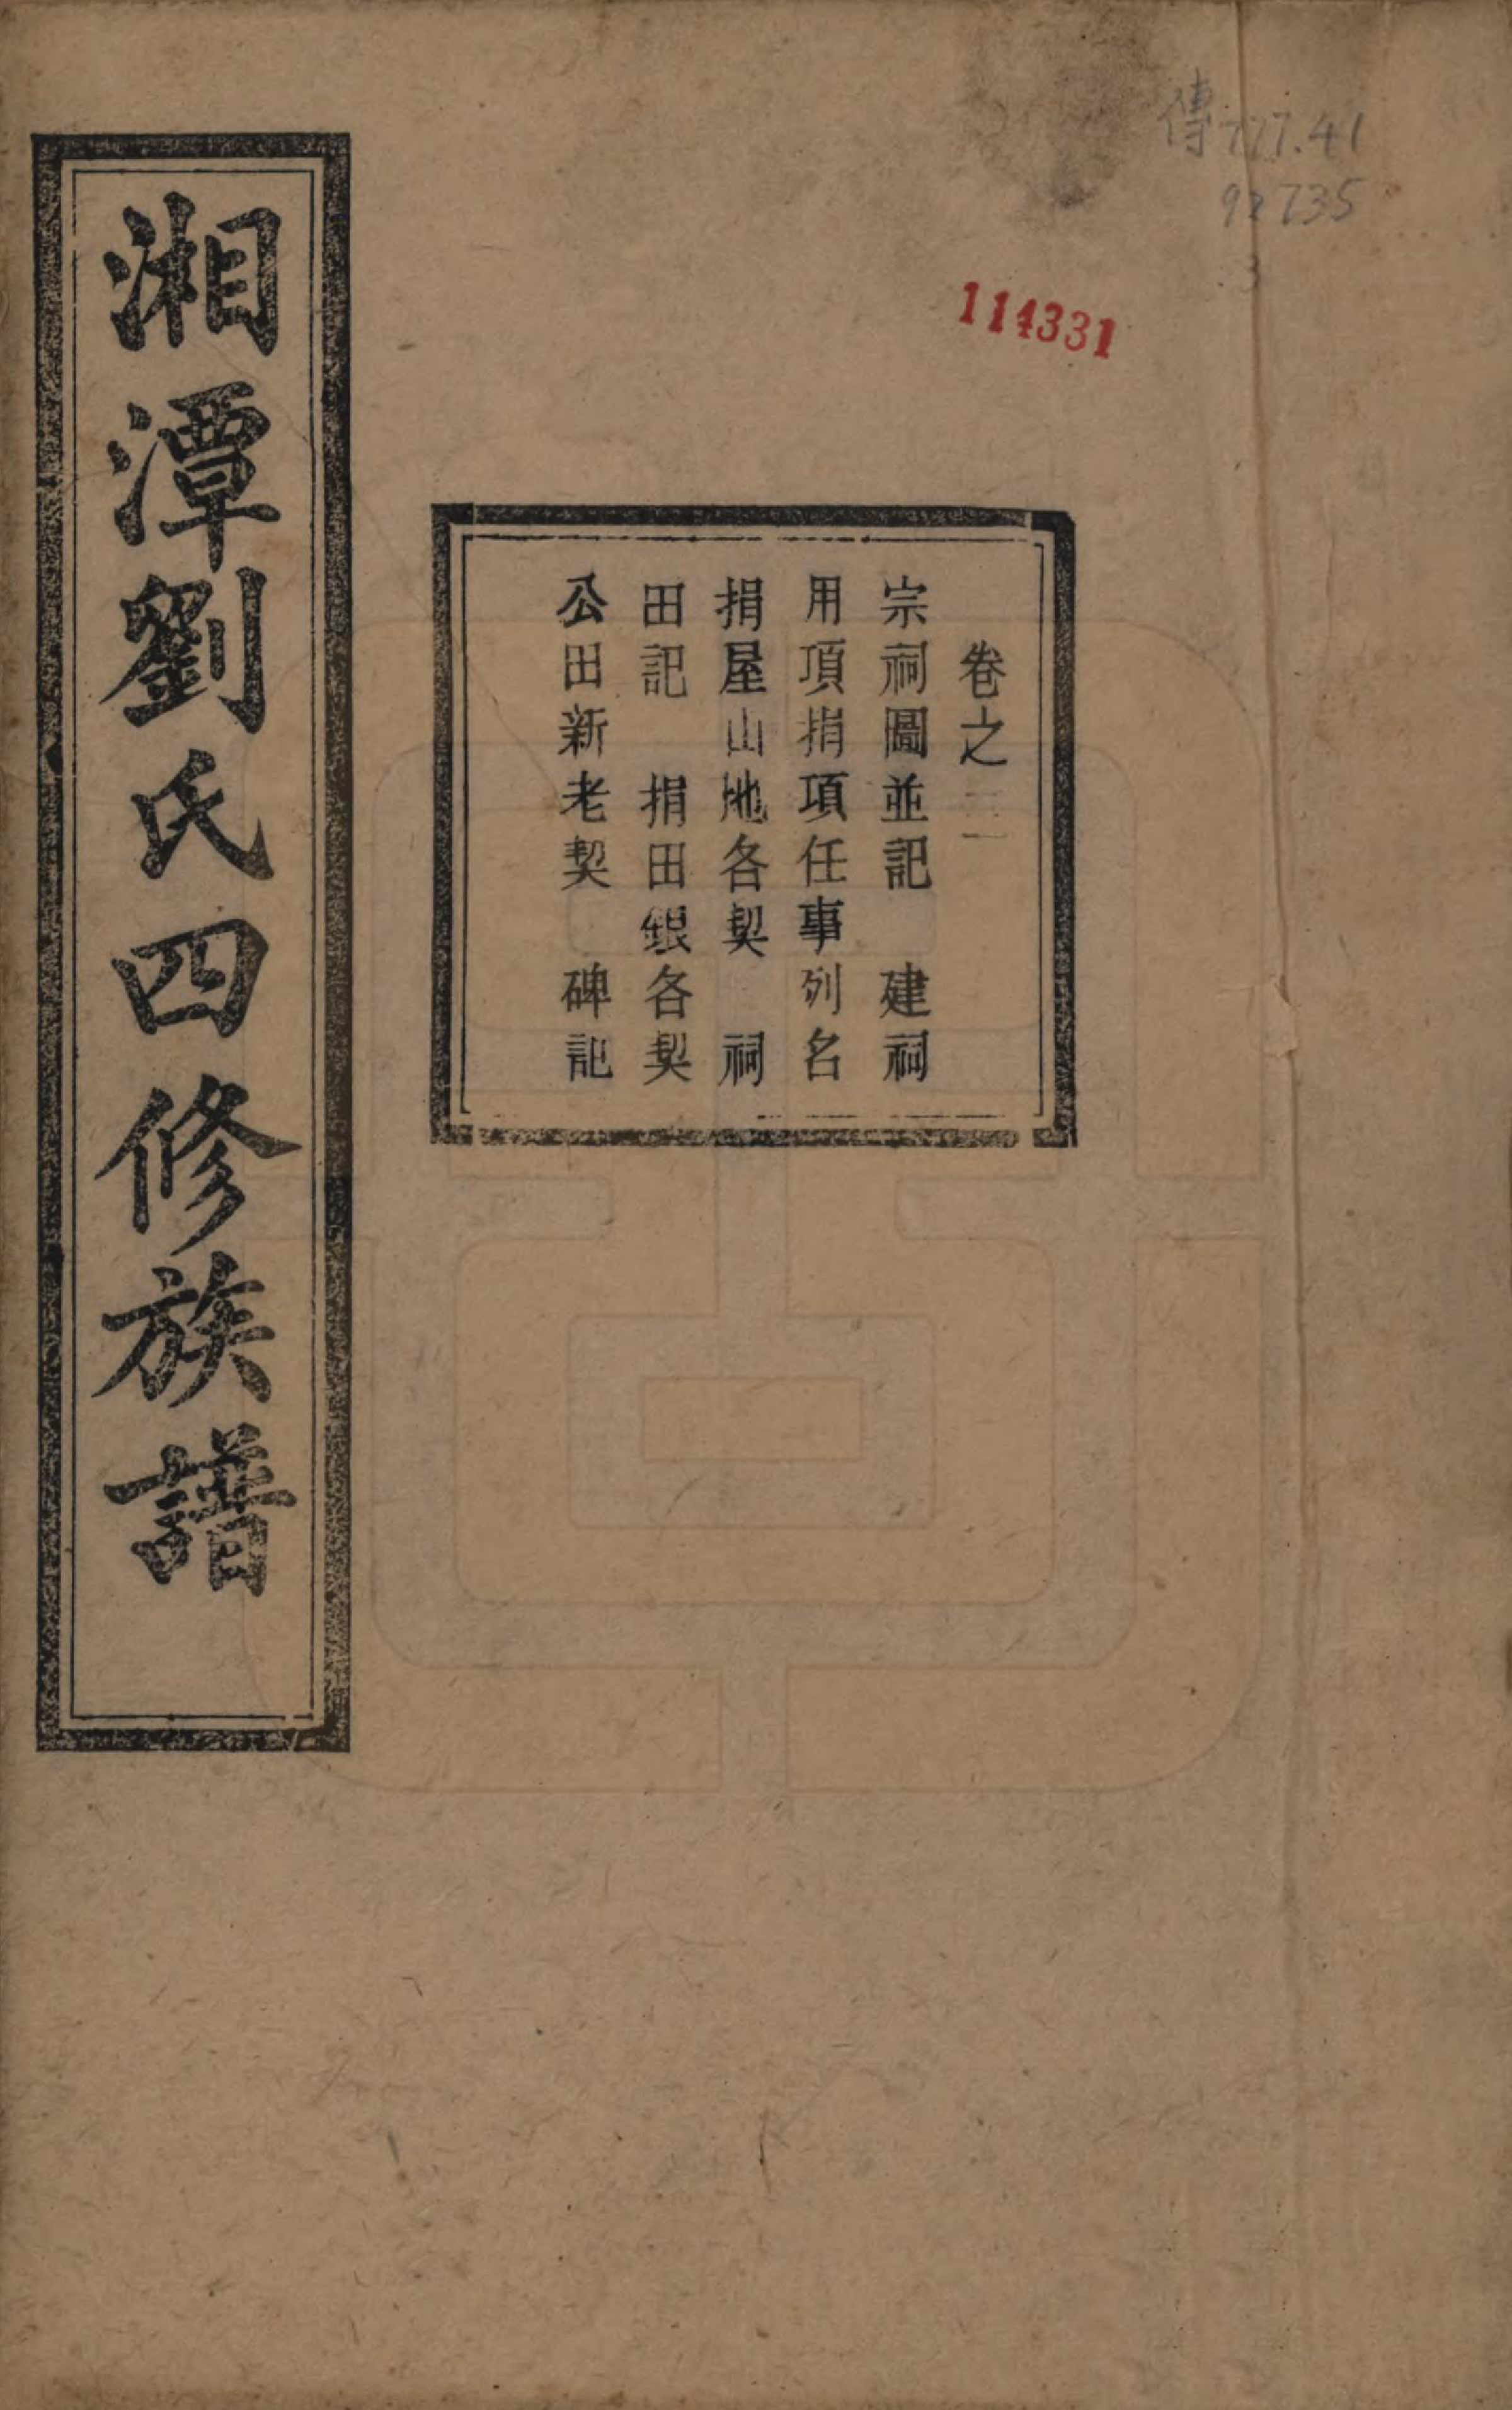 傳777.41
92735
:3
114331
卷之二
宗祠圖並記　建祠
用項捐項任事列名
捐屋山地各契　祠
田記　捐田銀各契
公田新老契　碑記
湘潭劉氏四修族譜